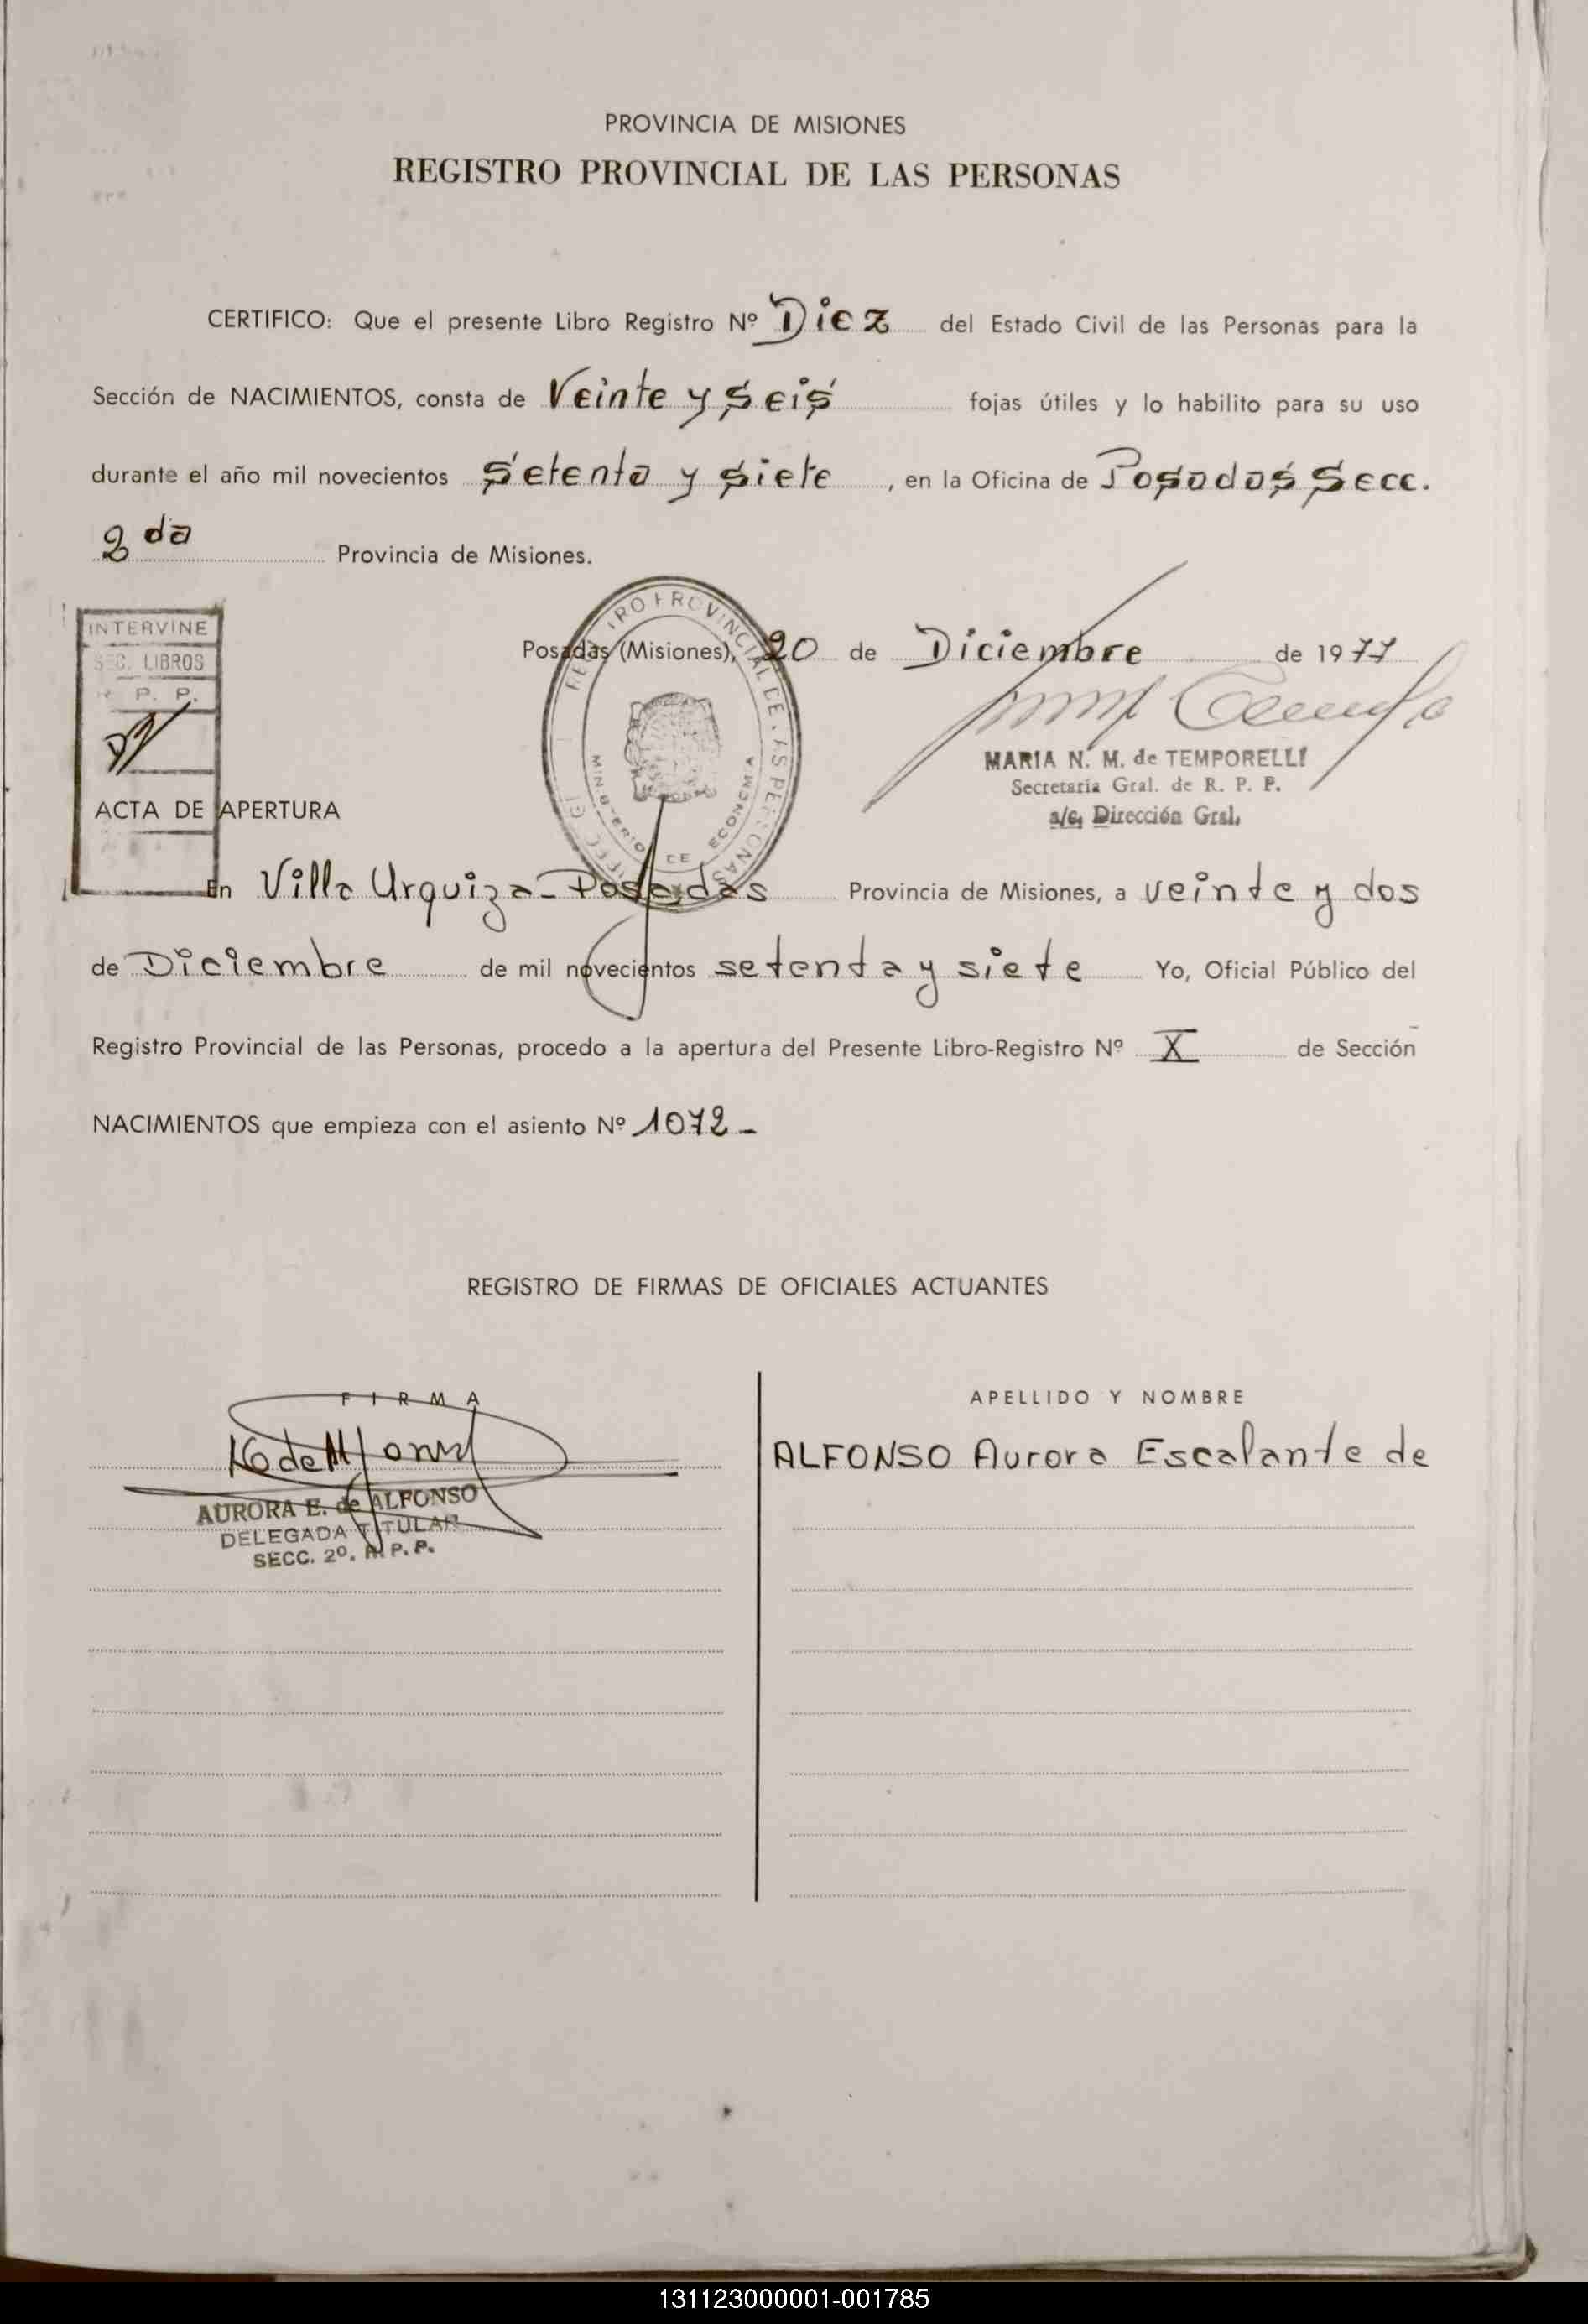 PROVINCIA DE MISIONES
REGISTRO PROVINCIAL DE LAS PERSONAS
CERTIFICO: Que el presente Libro Registro Nº Diez del Estado Civil de las Personas para la
Sección de NACIMIENTOS, consta de Veinte y Seis fojas útiles y lo habilito para su uso
durante el año mil novecientos Setenta y Siete, en la Oficina de Posadas Secc.
2da Provincia de Misiones.
INTERVINE
SEC. LIBROS
P. P.
Posadas (Misiones), 20 de Diciembre de 1977
MINISTERIO DE ECONOMIA
MARIA N. M. de TEMPORELLI
Secretaría Gral. de R. P. P.
a/c. Dirección Gral.
ACTA DE APERTURA
En Villa Urquiza - Posadas Provincia de Misiones, a veinte y dos
de Diciembre de mil novecientos setenta y siete Yo, Oficial Público del
Registro Provincial de las Personas, procedo a la apertura del Presente Libro-Registro Nº X de Sección
NACIMIENTOS que empieza con el asiento Nº 1072 -
REGISTRO DE FIRMAS DE OFICIALES ACTUANTES
FIRMA
APELLIDO Y NOMBRE
ALFONSO Aurora Escalante de
AURORA E. de ALFONSO
DELEGADA TITULAR
SECC. 2º. R. P. P.
131123000001-001785